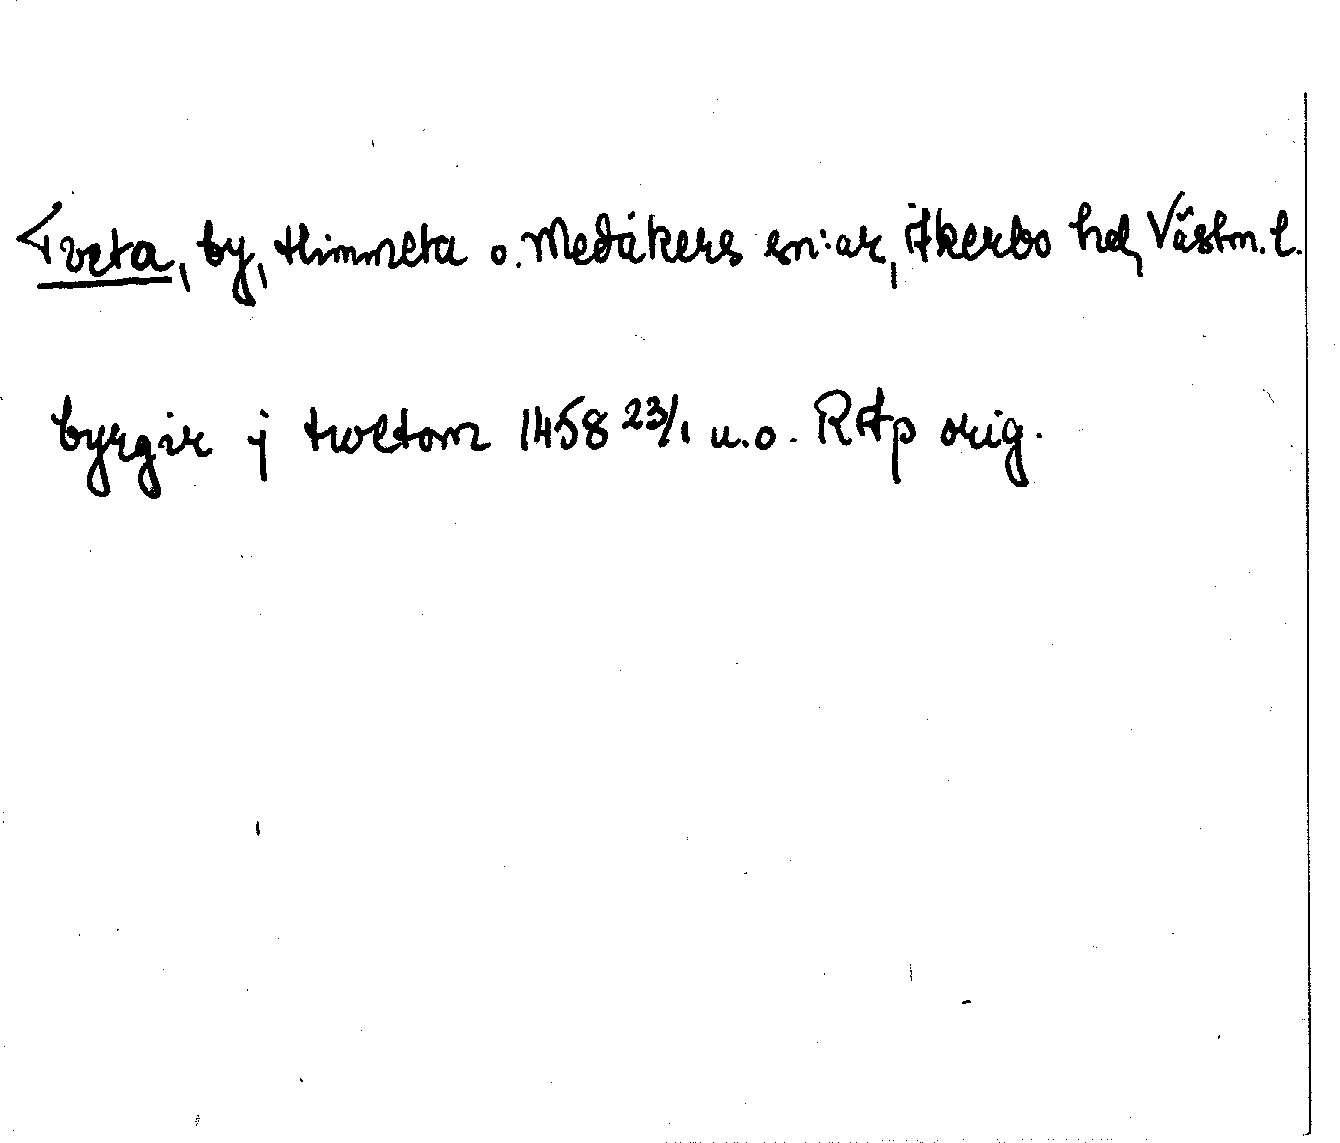 Tveta, by, Himmeta o. Medåkers sn:ar, Åkerbo hd, Västm. l.
byrgir j twetom 1458 23/1 u.o. RAp orig.